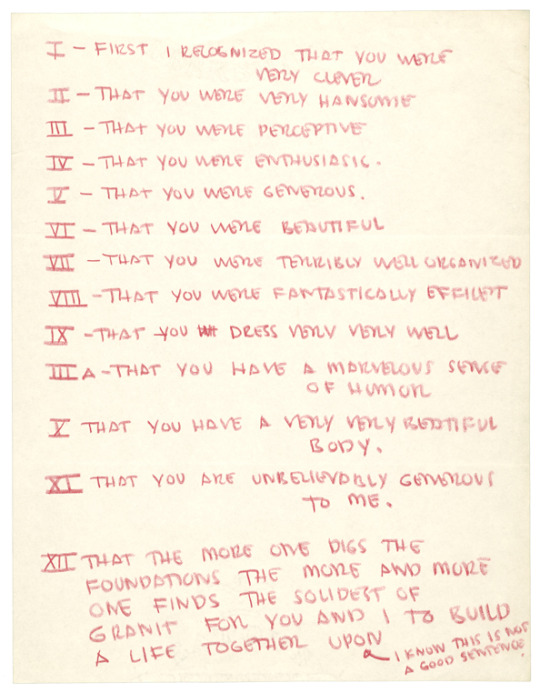 I – FIRST I RECOGNIZED THAT YOU WERE
VERY CLEVER
II – THAT YOU WERE VERY HANSOME
III – THAT YOU WERE PERCEPTIVE
IV – THAT YOU WERE ENTHUSIASIC.
V – THAT YOU WERE GENEROUS.
VI – THAT YOU WERE BEAUTIFUL
VII – THAT YOU WERE TERRIBLY WELL ORGANIZED
VIII – THAT YOU WERE FANTASTICALLY EFFICIET
IX – THAT YOU DRESS VERY VERY WELL
IIIA – THAT YOU HAVE A MARVELOUS SENSE
OF HUMOR
X THAT YOU HAVE A VERY VERY BEATIFUL
BODY.
XI THAT YOU ARE UNBELIEVABLY GENEROUS
TO ME.
XII THAT THE MORE ONE DIGS THE
FOUNDATIONS THE MORE AND MORE
ONE FINDS THE SOLIDEST OF
GRANIT FOR YOU AND I TO BUILD
A LIFE TOGETHER UPON
I KNOW THIS IS NOT
A GOOD SENTENCE.